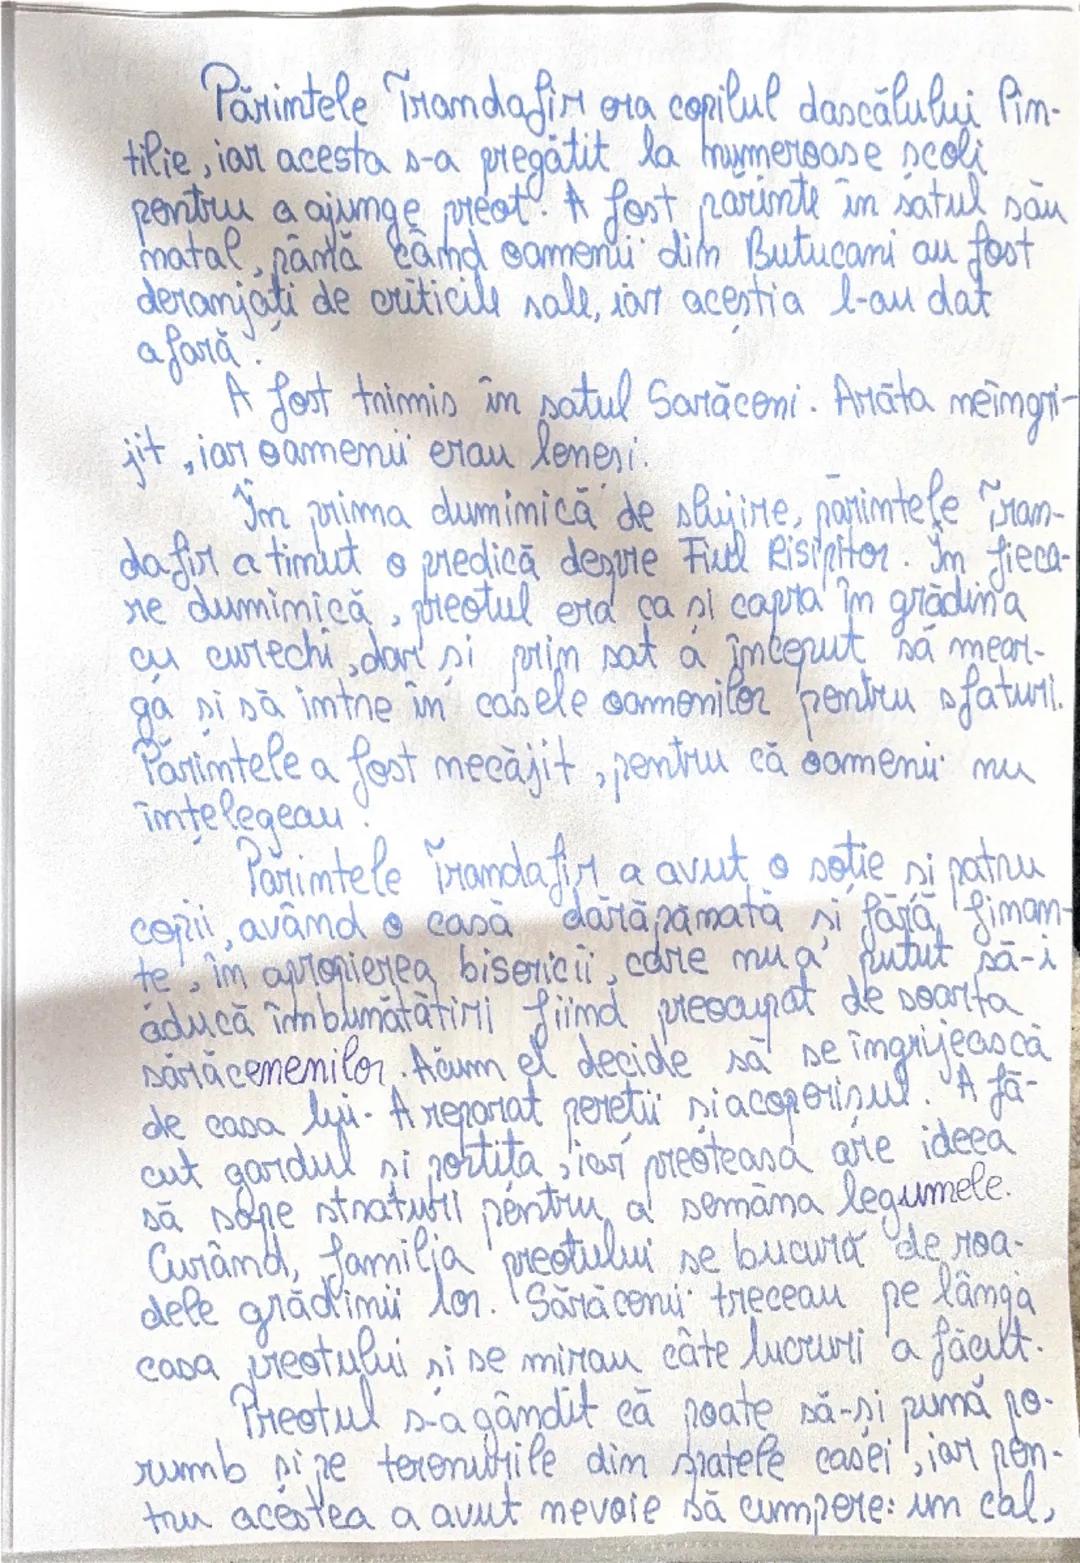 Părintele Trandafir era copilul dascălului Pin-
tilie, iar acesta s-a pregătit la numeroase școli
pentru a ajunge preot. A fost părinte în satul său
natal, până când oamenii din Butucani au fost
deranjați de criticile sale, iar aceștia l-au dat
afară.
A fost trimis în satul Sărăceni. Arăta neîngri-
jit, iar oamenii erau leneși.
În prima duminică de slujire, părintele Tran-
dafir a ținut o predică despre Fiul Risipitor. În fieca-
re duminică, preotul era ca și capra în grădina
cu curechi, dar și prin sat a început să mear-
gă și să intre în casele oamenilor pentru sfaturi.
Părintele a fost necăjit, pentru că oamenii nu
înțelegeau.
Părintele Trandafir a avut o soție și patru
copii, având o casă dărăpămată și fără finan-
te, în apropierea bisericii, care nu a putut să-i
aducă îmbunătățiri fiind preocupat de soarta
sărăcenenilor. Acum el decide să se îngrijească
de casa lui. A reparat pereții și acoperișul. A fă-
cut gardul și portița, iar preoteasa are ideea
să sape straturi pentru a semăna legumele.
Curând, familia preotului se bucură de roa-
dele grădinii lor. Sărăcenii treceau pe lângă
casa preotului și se mirau câte lucruri a făcut.
Preotul s-a gândit că poate să-și pună po-
rumb și pe terenurile din spatele casei, iar pen-
tru acestea a avut nevoie să cumpere: un cal,